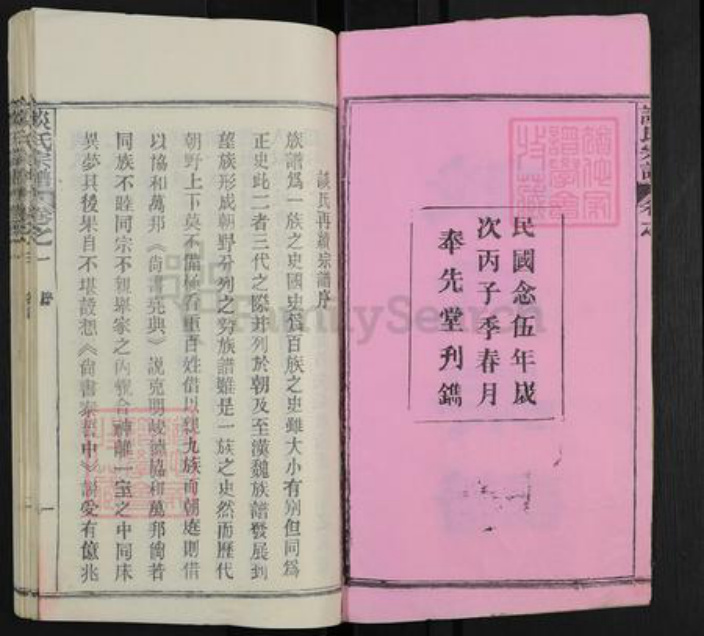 民國念伍年歲
次丙子季春月
奉先堂刊鐫
談氏再續宗譜序
族譜爲一族之史國史爲百族之史雖大小有別但同爲
正史此二者三代之際并列於朝及至漢魏族譜發展到
望族形成朝野分列之勢族譜雖是一族之史然而歷代
朝野上下莫不備極看重百姓借以親九族而朝庭則借
以協和萬邦《尚書堯典》說克明峻德協和萬邦倘若
同族不睦同宗不親舉家之內貌合神離一室之中同床
異夢其後果自不堪設想《尚書泰誓中》謂受有億兆
談氏宗譜
卷之一
FamilySearch